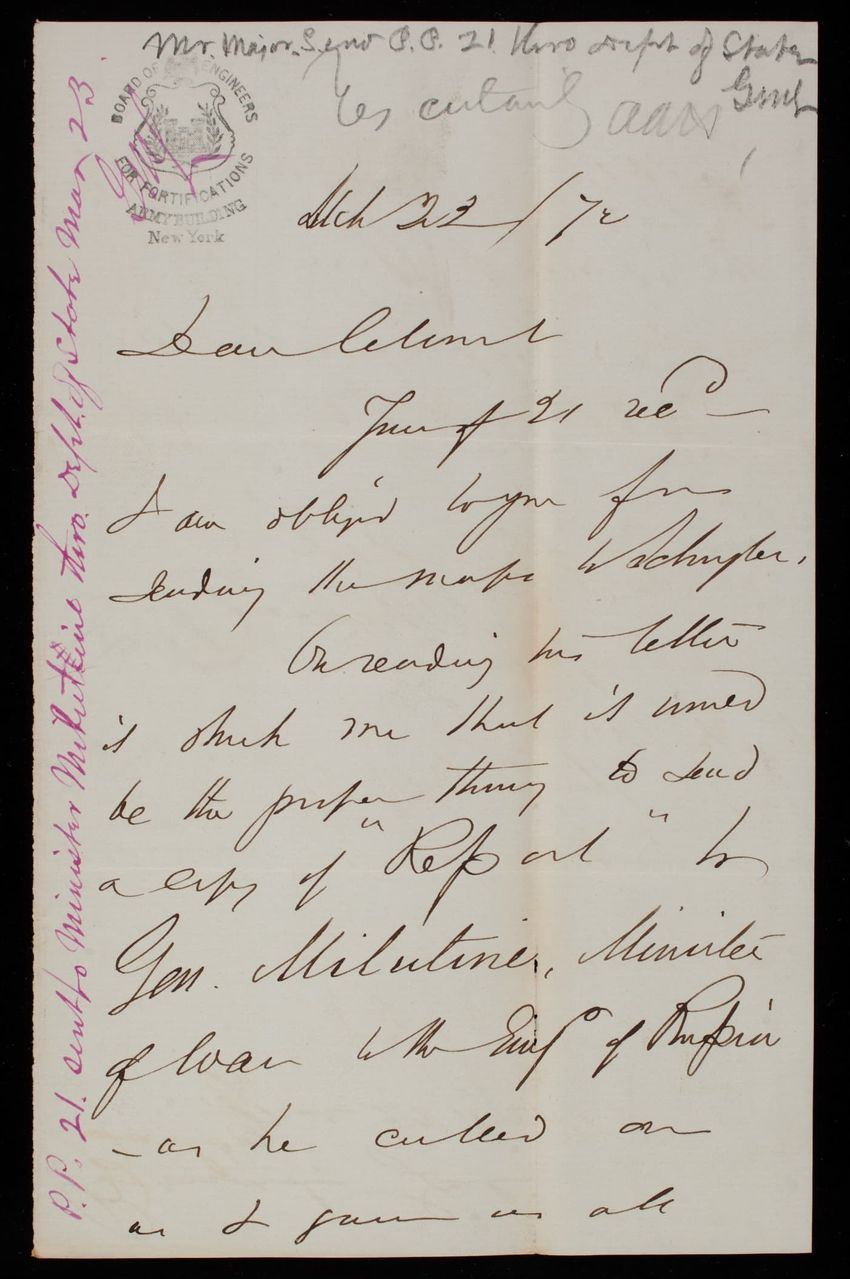 Mr. Major. Send P.P. 21 thro Dept of State
Gml
BOARD OF ENGINEERS
FOR FORTIFICATIONS
ARMY BUILDING
New York
Mch 22/72
Dear Colonel
Yours of 21 recd —
I am oblig'd to you for
sending the maps to Schuyler.
On reading his letter
it struck me that it would
be the proper thing to send
a copy of "Report" to
Gen. Milutine, Minister
of War to the Empo of Russia
- as he called on
as I gave us all
P.P. 21. sent to Minister Milutine thro. Dept. of State Mar 23